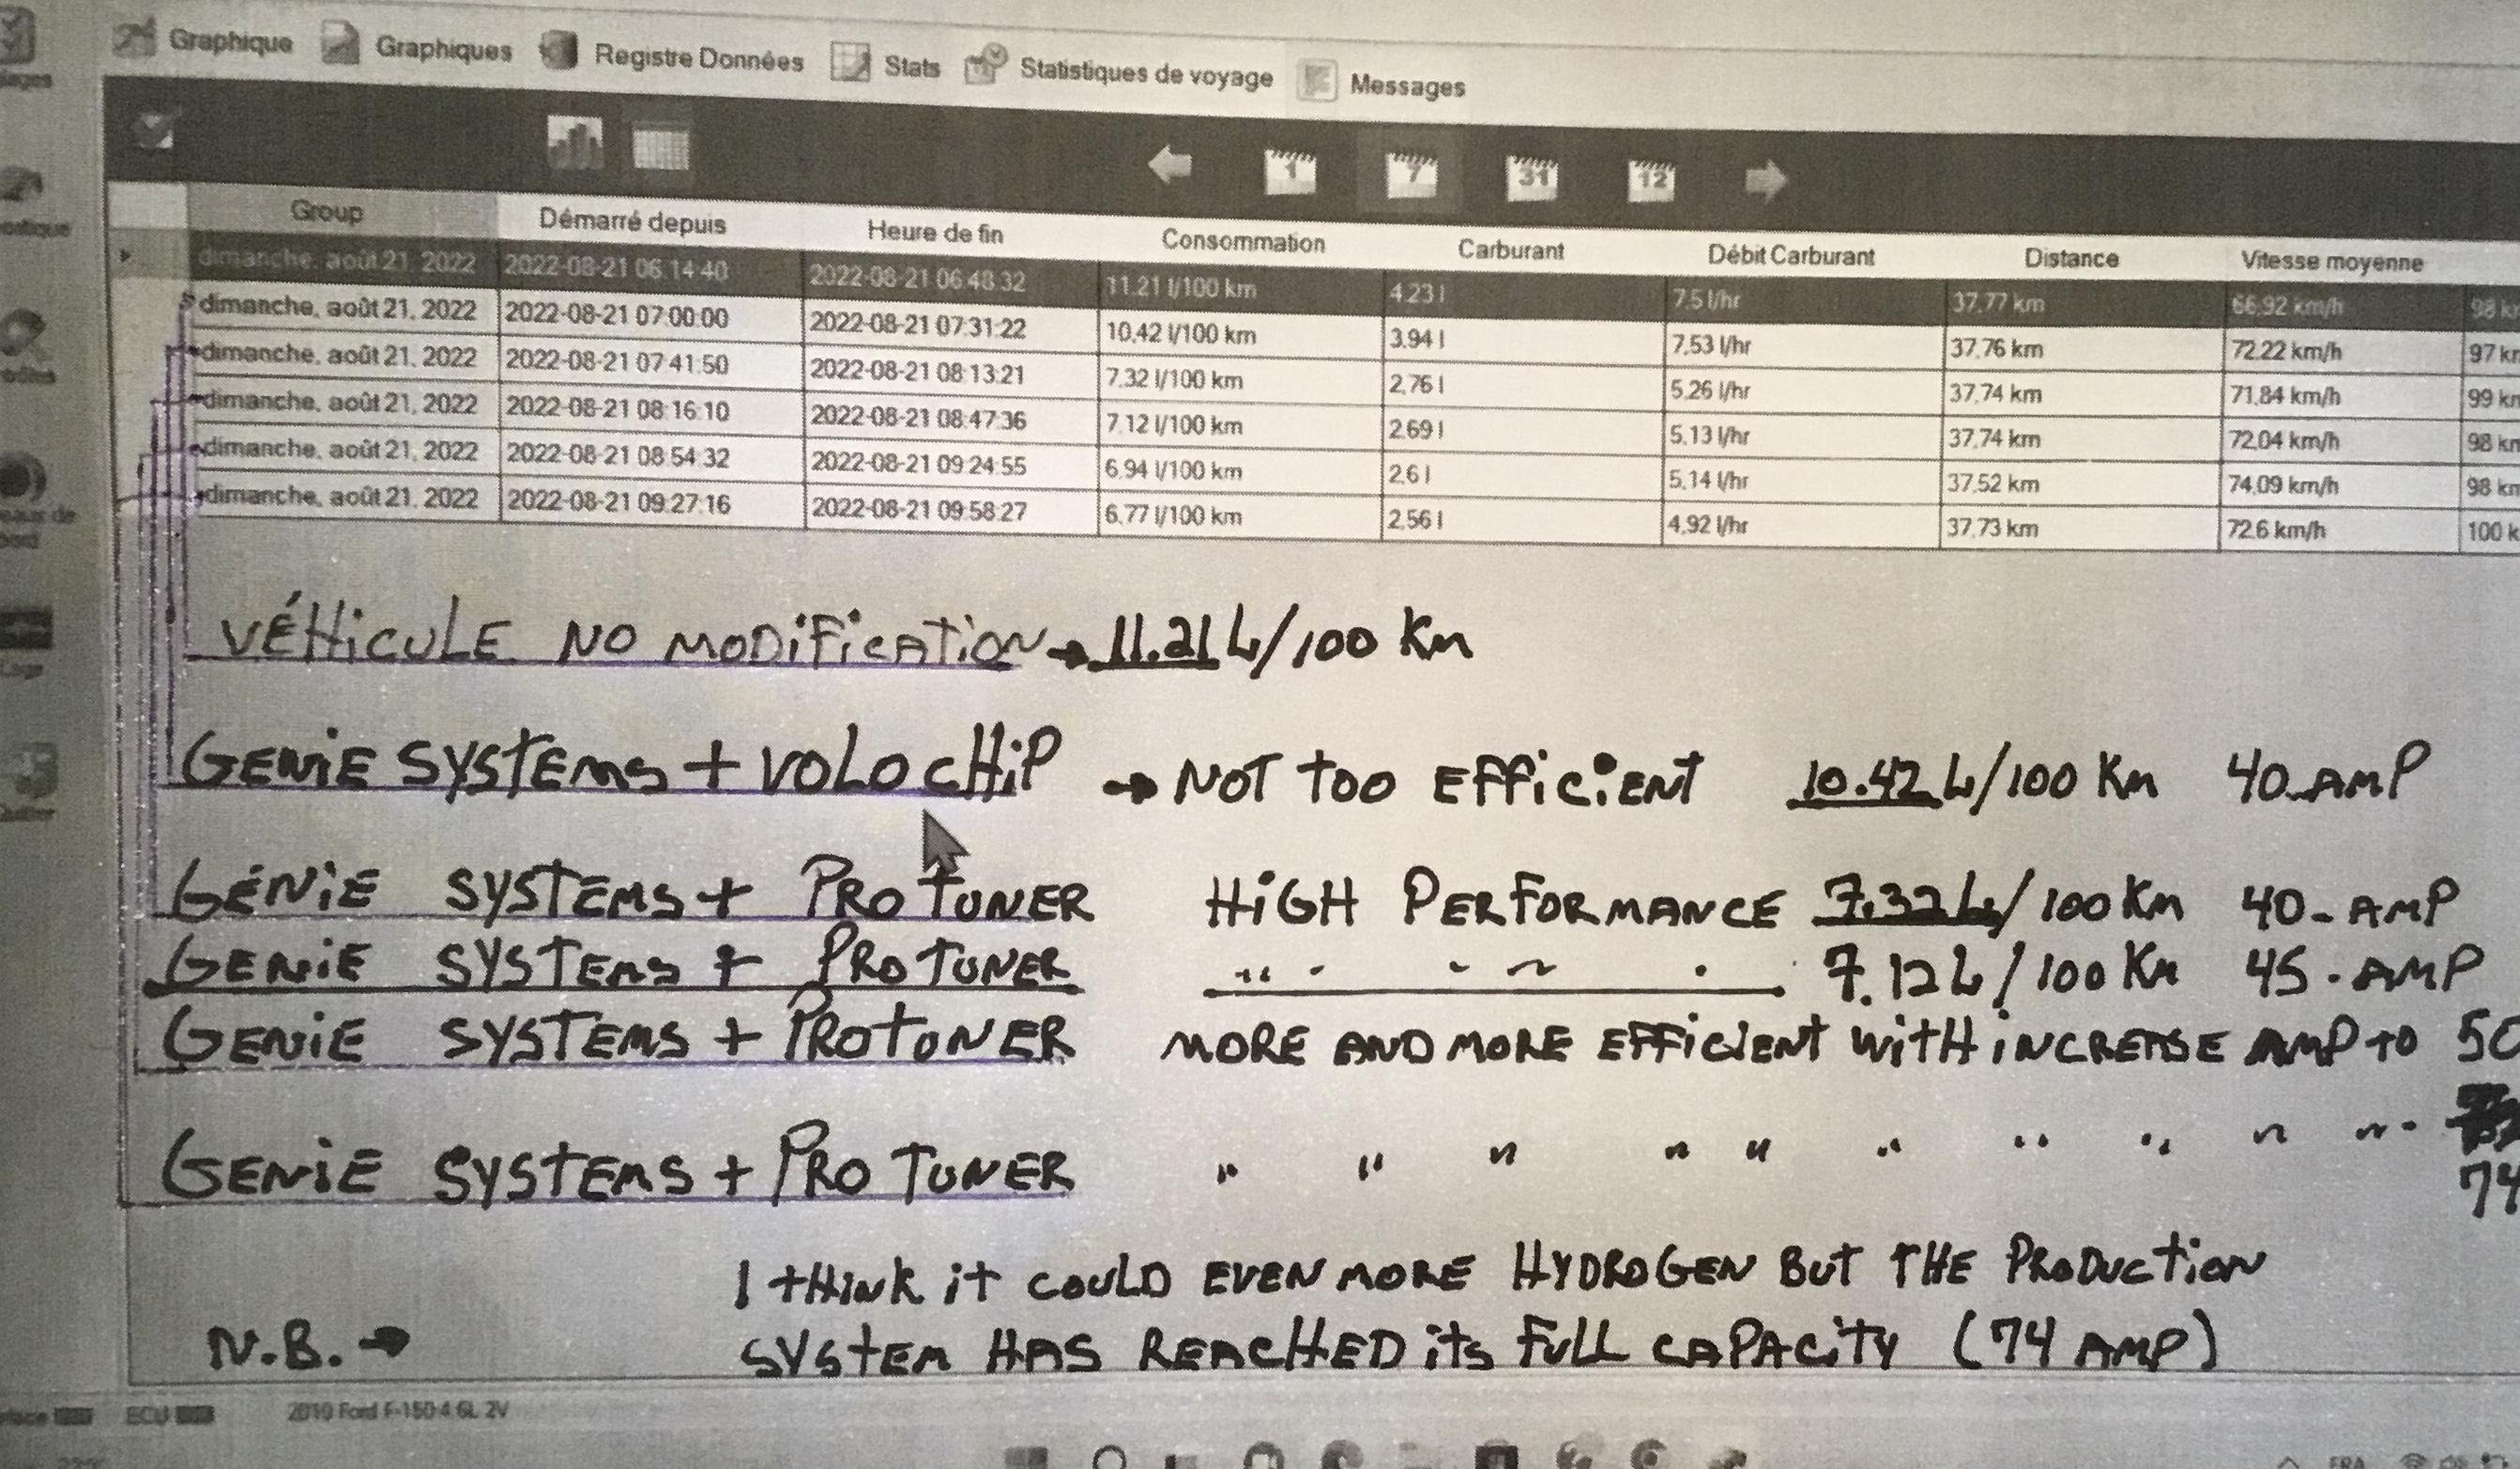 Graphique Graphiques Registre Données Stats Statistiques de voyage Messages
1 7 31 12
Group Démarré depuis Heure de fin Consommation Carburant Débit Carburant Distance Vitesse moyenne
dimanche, août 21, 2022 2022-08-21 06:14:40 2022-08-21 06:48:32 11.21 l/100 km 4.23 l 7.5 l/hr 37.77 km 66.92 km/h 98
dimanche, août 21, 2022 2022-08-21 07:00:00 2022-08-21 07:31:22 10,42 l/100 km 3,94 l 7,53 l/hr 37,76 km 72,22 km/h 97
dimanche, août 21, 2022 2022-08-21 07:41:50 2022-08-21 08:13:21 7,32 l/100 km 2,76 l 5,26 l/hr 37,74 km 71,84 km/h 99
dimanche, août 21, 2022 2022-08-21 08:16:10 2022-08-21 08:47:36 7,12 l/100 km 2,69 l 5,13 l/hr 37,74 km 72,04 km/h 98
dimanche, août 21, 2022 2022-08-21 08:54:32 2022-08-21 09:24:55 6,94 l/100 km 2,6 l 5,14 l/hr 37,52 km 74,09 km/h 98
dimanche, août 21, 2022 2022-08-21 09:27:16 2022-08-21 09:58:27 6,77 l/100 km 2,56 l 4,92 l/hr 37,73 km 72,6 km/h 100
VÉHiCULE NO MODiFiCATiON → 11.21 L/100 Km
GENiE SYSTEMS + VOLO CHiP → NOT TOO EFFiCiENT 10.42 L/100 Km 40-AMP
GÉNiE SYSTEMS + PRO TUNER HiGH PERFORMANCE 7.32 L/100 Km 40-AMP
GENiE SYSTEMS + PRO TUNER " " " " 7.12 L/100 Km 45-AMP
GENiE SYSTEMS + PROTUNER MORE AND MORE EFFiCiENT WiTH iNCREASE AMP TO 50
GENiE SYSTEMS + PRO TUNER " " " " " " " " " " 74
I THiNK iT COULD EVEN MORE HYDROGEN BUT THE PRODUCTiON
N.B. → SYSTEM HAS REACHED iTS FULL CAPACiTY (74 AMP)
ECU 2010 Ford F-150 4.6L 2V
FRA